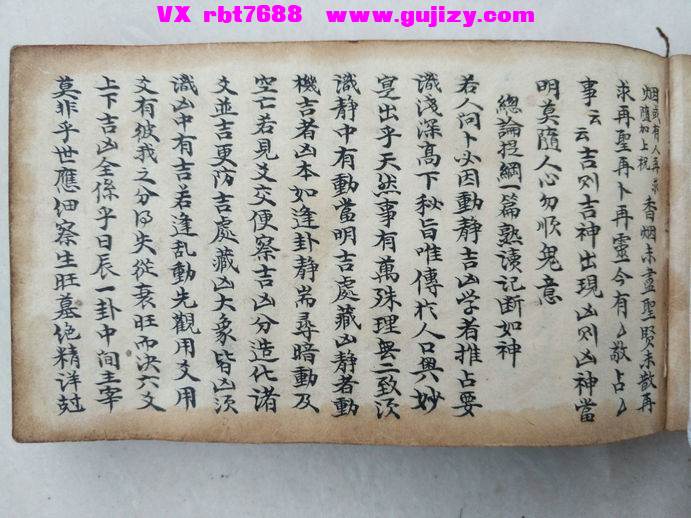 VX rbt7688 www.gujizy.com
烟或有人再求
隨如上祝
香烟未盡聖賢未散再
求再聖再卜再靈今有厶敬占厶
事云云吉则吉神出現凶则凶神當
明莫隨人心勿順鬼意
總論提綱一篇熟读记断如神
若人问卜必因動静吉凶学者推占要
識淺深高下秘旨唯傳於人口奥妙
寔出乎天然事有萬殊理無二致须
識静中有動當明吉處藏凶静者動
機吉者凶本如逢卦静當尋暗動及
空亡若見爻交便察吉凶分造化诸
爻並吉更防吉處藏凶大象皆凶须
識凶中有吉若逢乱動先觀用爻用
爻有彼我之分得失從衰旺而决六爻
上下吉凶全係乎日辰一卦中间主宰
莫非乎世應细察生旺墓绝精详尅